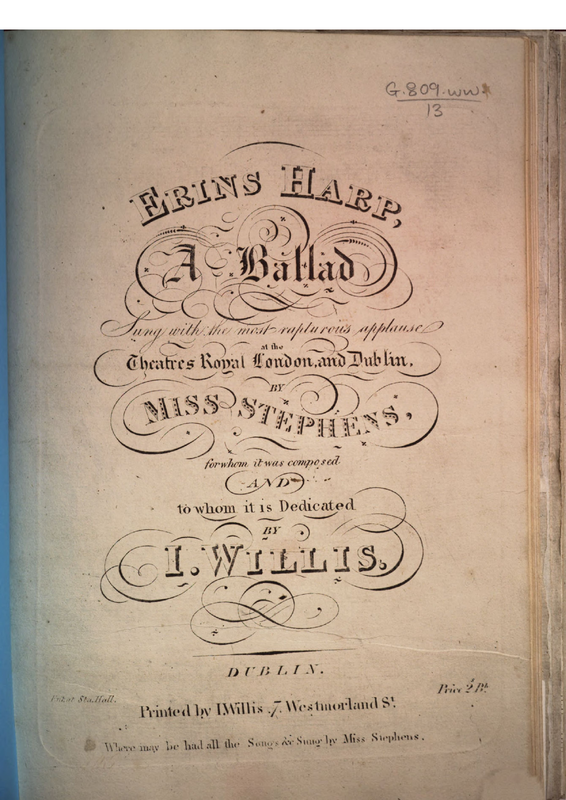 G.809.ww.
13
ERINS HARP,
A Ballad
Sung with the most rapturous applause
at the
Theatres Royal London, and Dublin,
BY
MISS STEPHENS,
for whom it was composed
AND
to whom it is Dedicated
BY
I. WILLIS.
DUBLIN.
Ent. at Sta. Hall.
Price 2 Bh.
Printed by I. Willis .7. Westmorland St.
Where may be had all the Songs &c Sung by Miss Stephens.